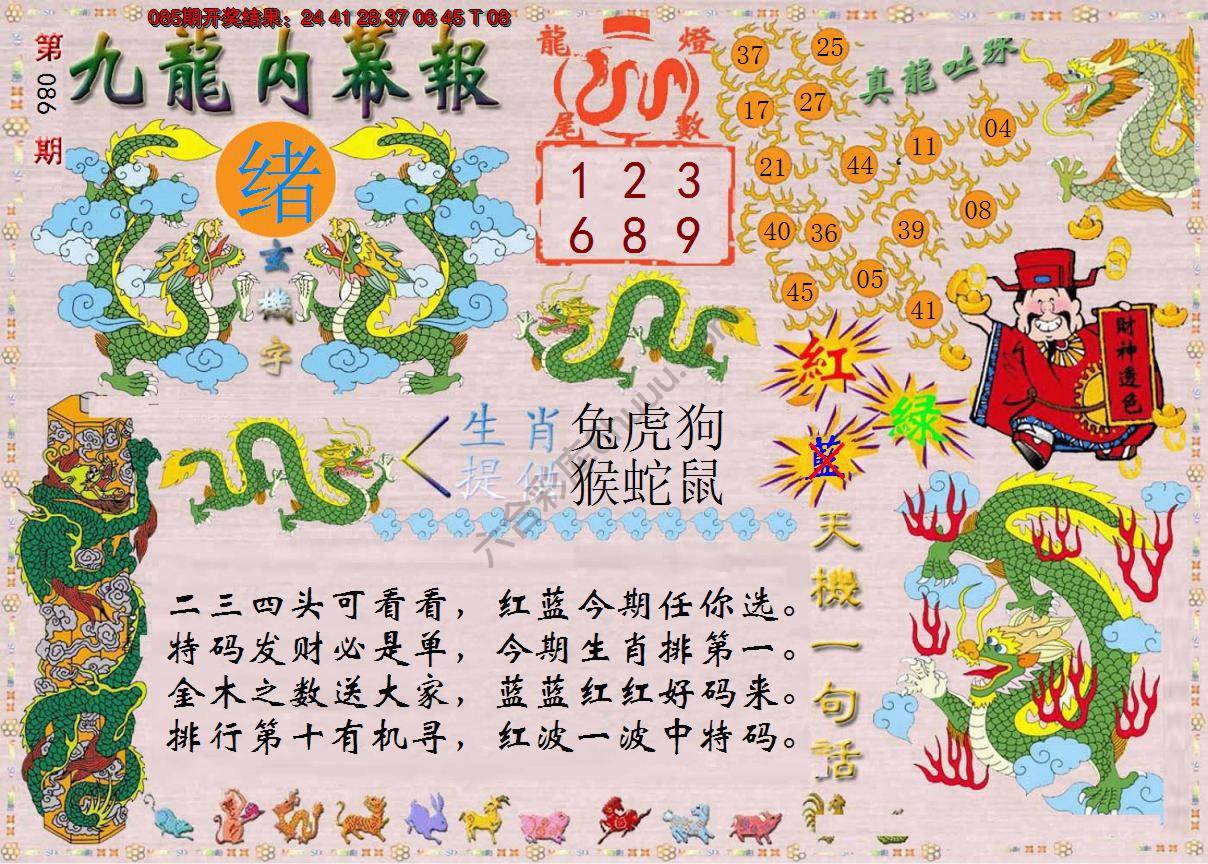 085期开奖结果：24 41 28 37 06 45 T 08
第
086
期
九龍内幕報
绪
玄
機
字
龍 燈
尾 數
1 2 3
6 8 9
真龍吐珠
37 25
17 27
11 04
21 44
40 36 39 08
45 05 41
財神透色
紅
綠
藍
生肖 兔虎狗
提供 猴蛇鼠
天機一句話
二三四头可看看，红蓝今期任你选。
特码发财必是单，今期生肖排第一。
金木之数送大家，蓝蓝红红好码来。
排行第十有机寻，红波一波中特码。